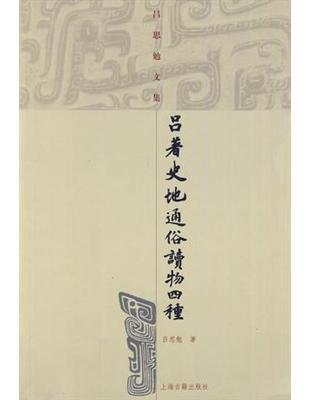 吕思勉文集
吕著史地通俗讀物四種
吕思勉 著
上海古籍出版社